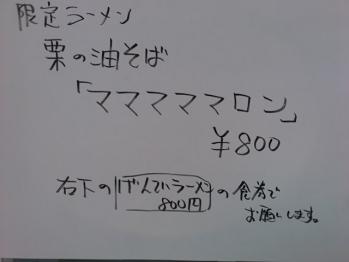 限定ラーメン
栗の油そば
「ママママママロン」
¥800
右下の げんていラーメン 800円 の食券で
お願いします。